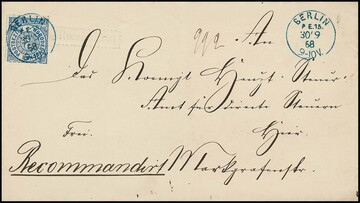 BERLIN
P.E.15.
30 9
68
9-10V.
BERLIN
68
992
An
Das Koenigl Haupt Steuer
Amt für Directe Steuern
Frei.
Hier.
Recommandirt Markgrafenstr.